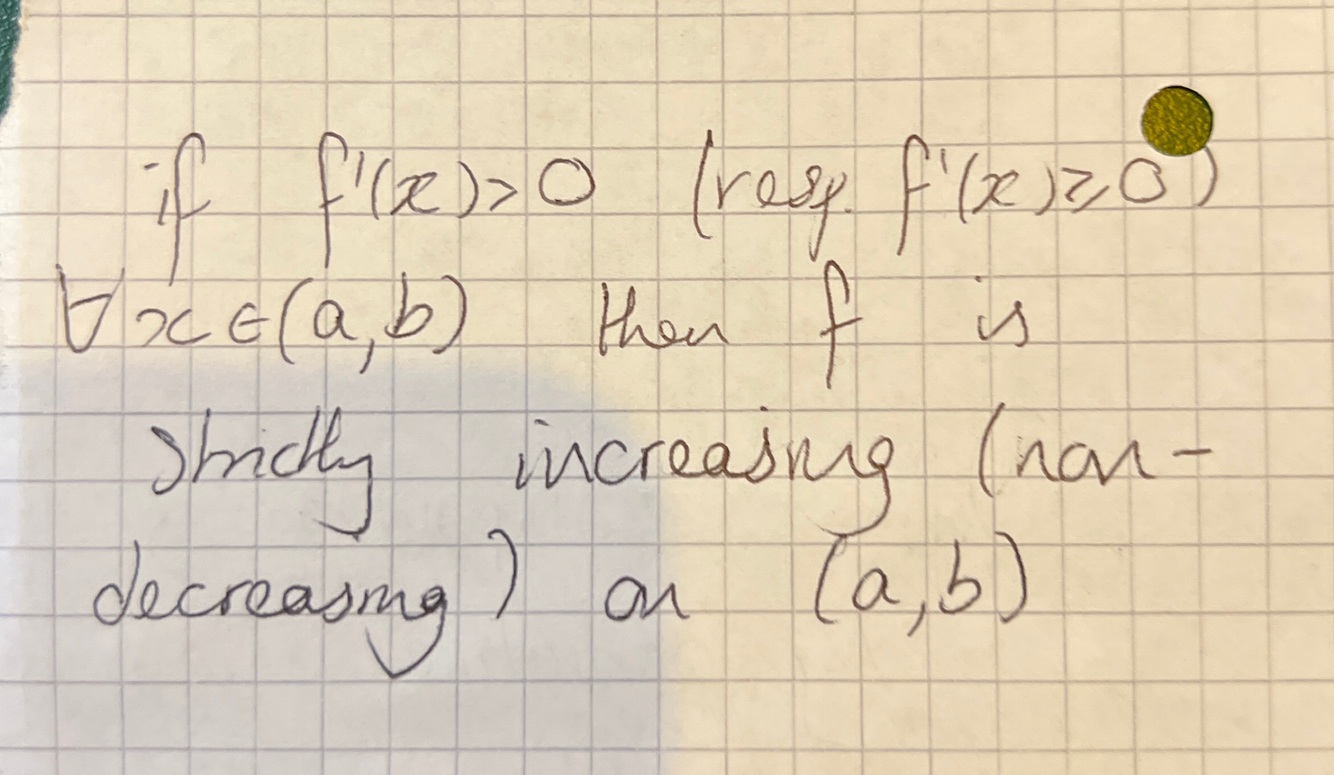 if f'(x)>0 (resp. f'(x)≥0)
∀x∈(a,b) then f is
strictly increasing (non-
decreasing) on (a,b)